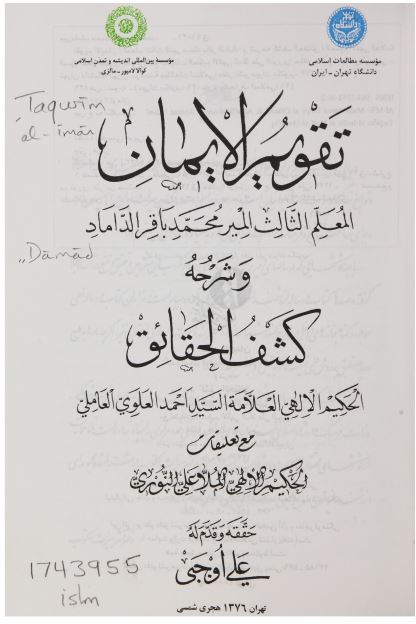 مؤسسه بین‌المللی اندیشه و تمدن اسلامی
کوالا لامپور - مالزی
مؤسسه مطالعات اسلامی
دانشگاه تهران - ایران
Taqwīm
al-īmān
تَقْويمُ الإيمَانِ
المُعَلِّم الثَّالِث المِير مُحَمَّد بَاقِر الدَّامَاد
Dāmād
وَ شَرْحُهُ
كَشْفُ الحَقَائِق
الحَكِيم الإلٰهِيّ العَلَّامَة السَّيِّد أَحْمَد العَلَوِيّ العَامِلِيّ
مع تعليقات
الحَكِيم الإلٰهِيّ المُلَّا عَلِيّ النُّورِيّ
حَقَّقَهُ وَ قَدَّمَ لَهُ
عَلِيّ أَوْجَبِي
1743955
islm
تهران ۱۳۷۶ هجری شمسی